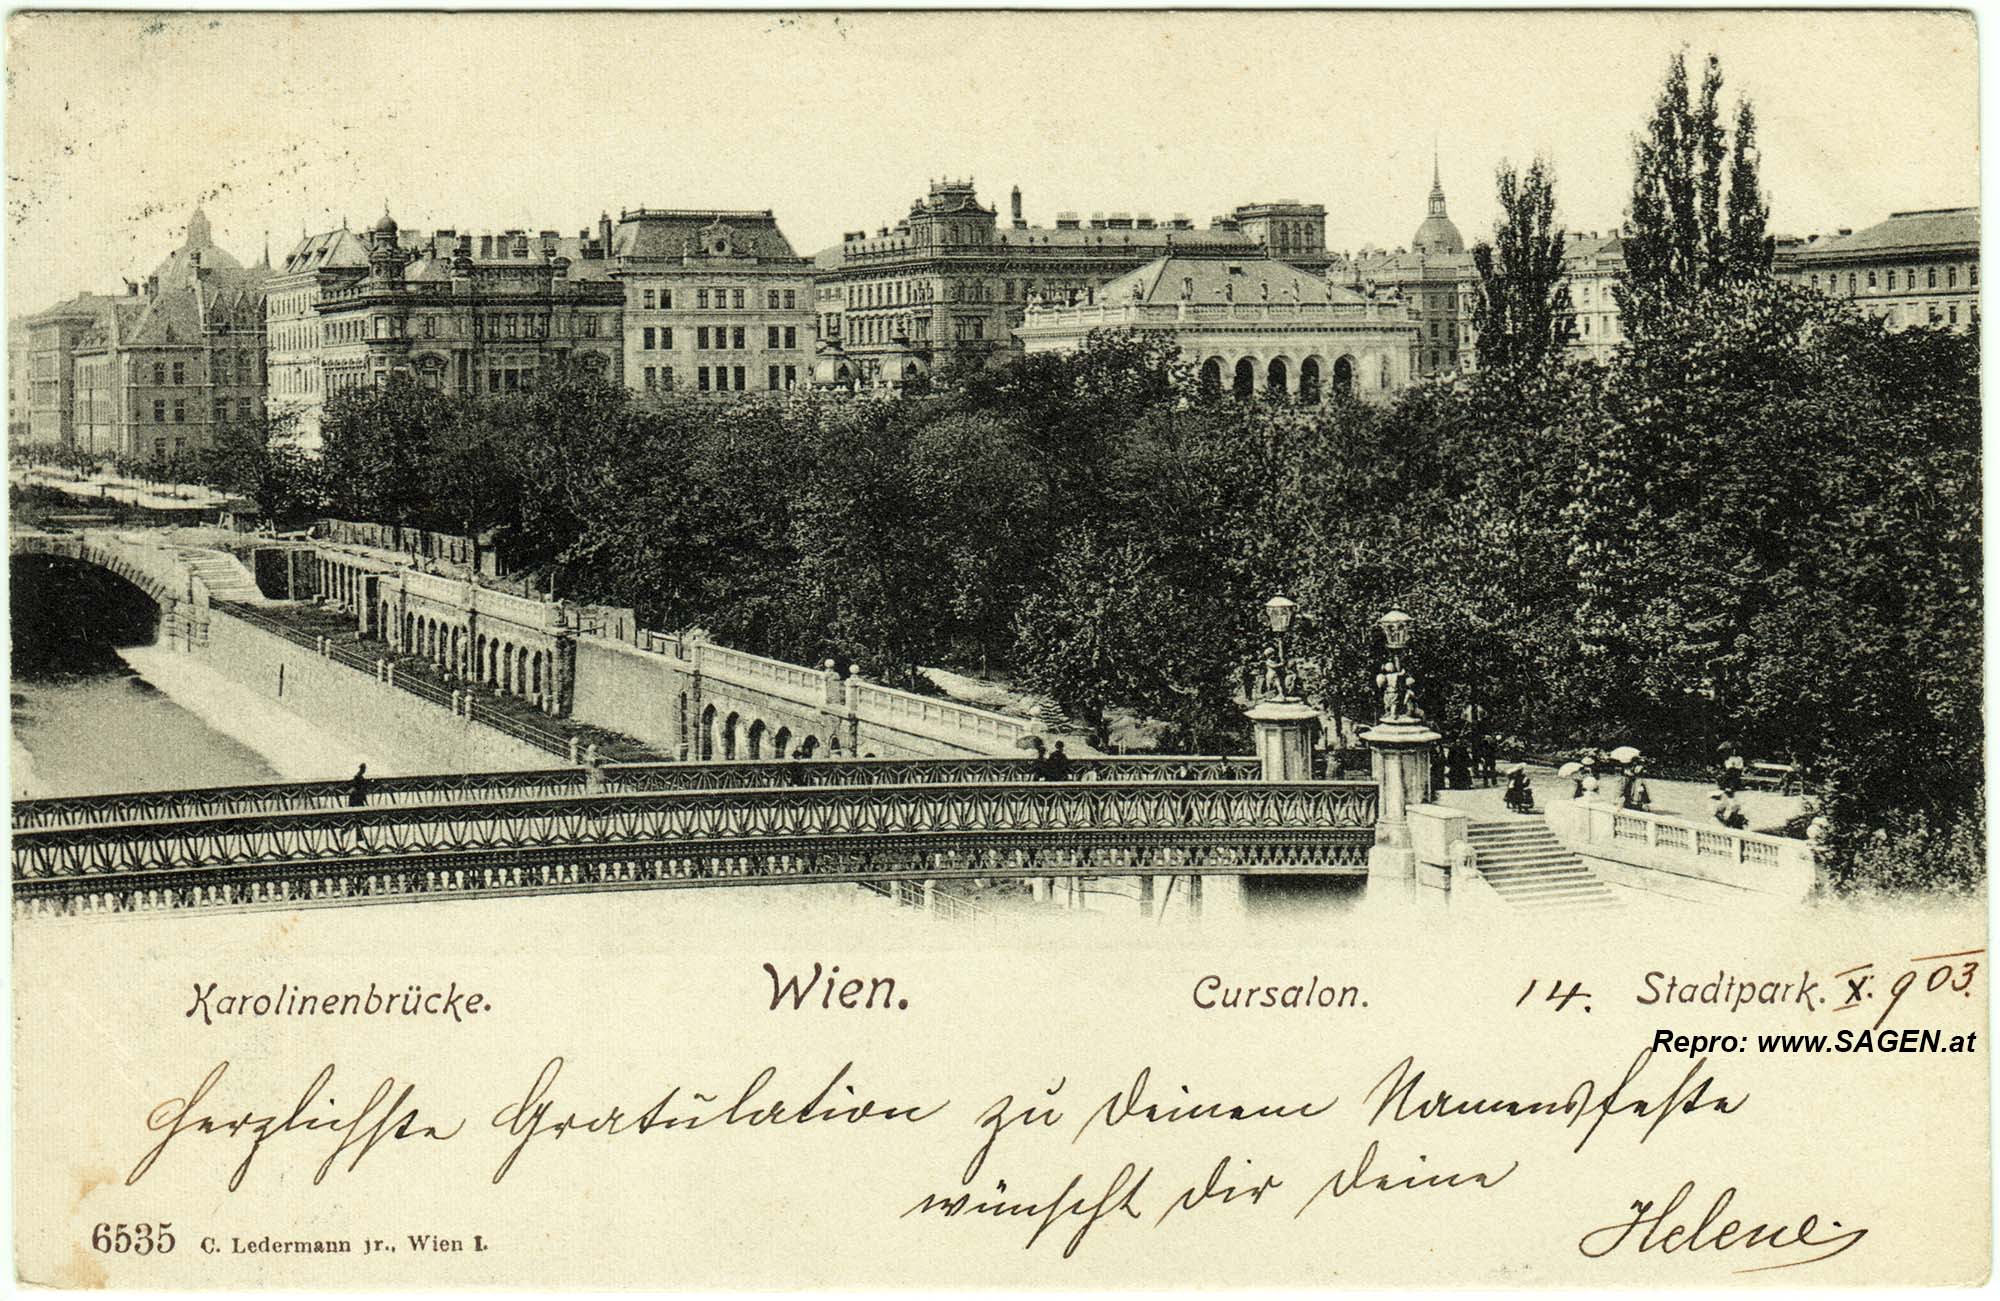 Karolinenbrücke. Wien. Cursalon. 14. Stadtpark. X. 903.
Repro: www.SAGEN.at
Herzlichste Gratulation zu Deinem Namensfeste
wünscht Dir Deine
Helene
6535 C. Ledermann jr., Wien I.